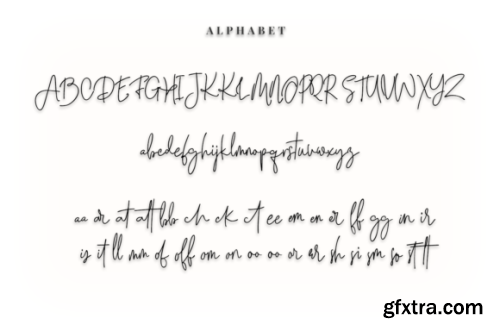 ALPHABET
ABCDEFGHIJKKLMNOPQRSTUVWXYZ
abcdefghijklmnopqrstuvwxyz
aa ar at att bb ch ck ct ee em en er ff gg in ir
is it ll mm of off om on oo or sh si sm so st tt
gfxtra.com